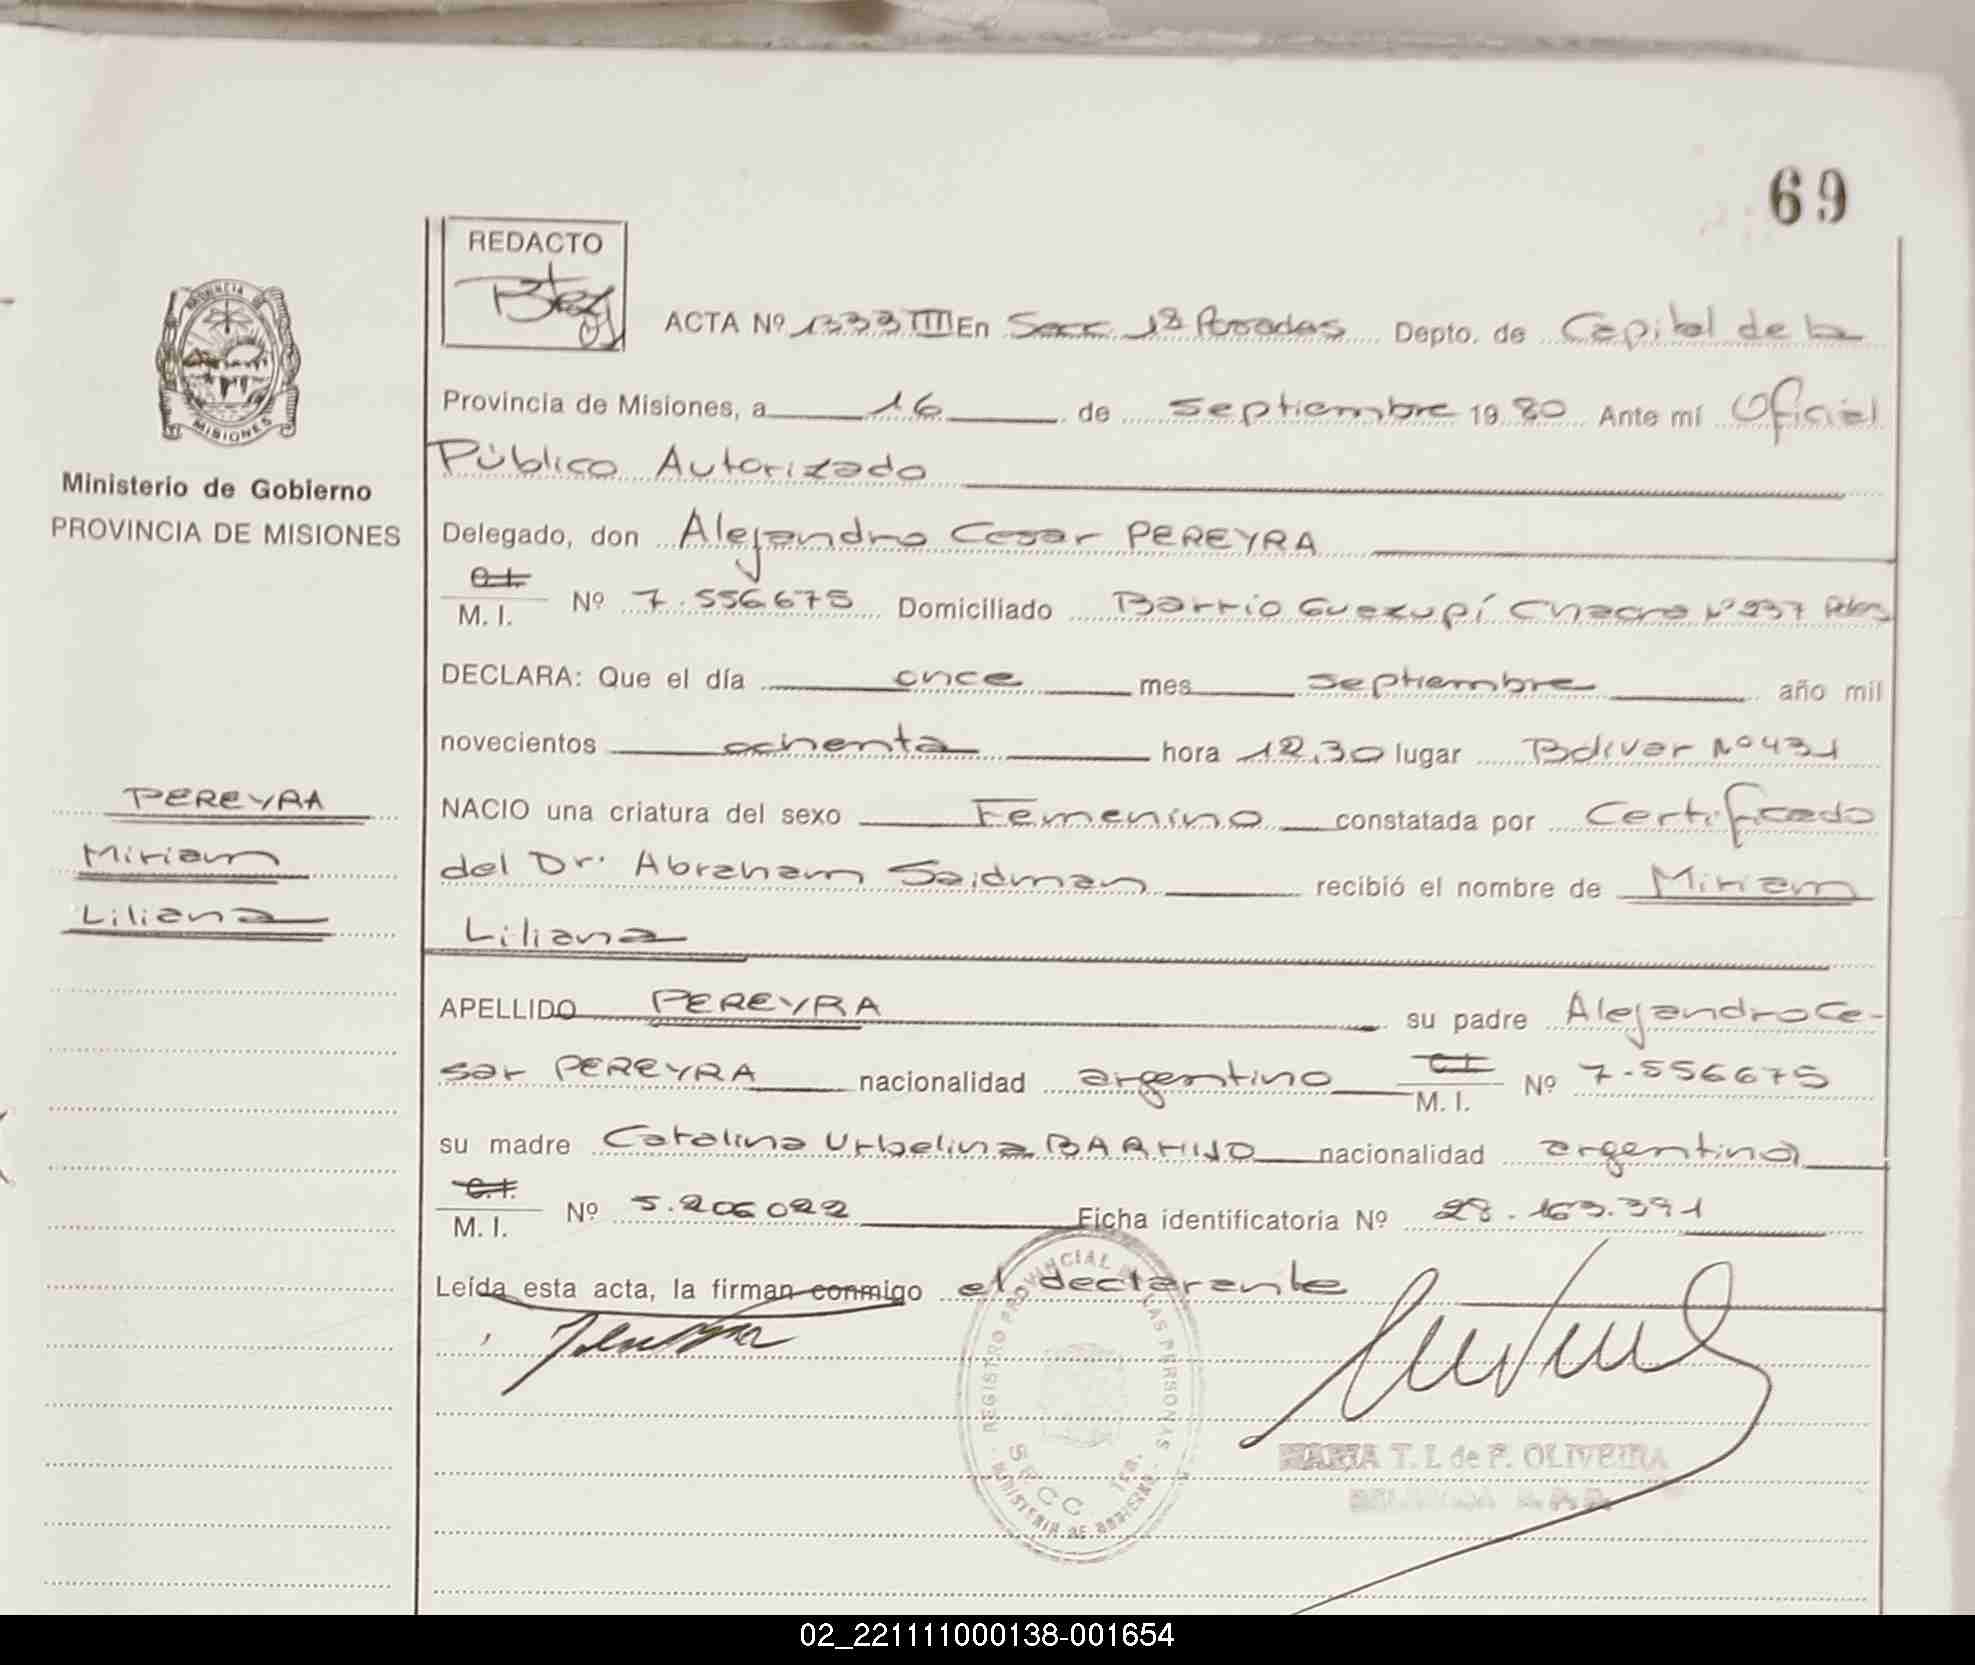 69
REDACTO
PROVINCIA DE
MISIONES
Ministerio de Gobierno
PROVINCIA DE MISIONES
ACTA Nº 1333 III En Secc. 1ª Posadas Depto. de Capital de la
Provincia de Misiones, a 16 de septiembre 1980 Ante mí Oficial
Público Autorizado
Delegado, don Alejandro Cesar PEREYRA
C.I.
M. I. Nº 7.556675 Domiciliado Barrio Guazupí Chacra Nº 237
DECLARA: Que el día once mes septiembre año mil
novecientos ochenta hora 12,30 lugar Bolivar Nº 431
NACIO una criatura del sexo Femenino constatada por Certificado
del Dr. Abraham Saidman recibió el nombre de Miriam
Liliana
PEREYRA
Miriam
Liliana
APELLIDO PEREYRA su padre Alejandro Ce-
sar PEREYRA nacionalidad argentino C.I.
M. I. Nº 7.556675
su madre Catalina Urbelina nacionalidad argentina
C.I.
M. I. Nº 5.206022 Ficha identificatoria Nº 28.163.391
Leída esta acta, la firman conmigo el declarante
REGISTRO PROVINCIAL DE LAS PERSONAS
SECC 1ra.
MINISTERIO DE GOBIERNO
MARIA T. L de F. OLIVEIRA
02_221111000138-001654